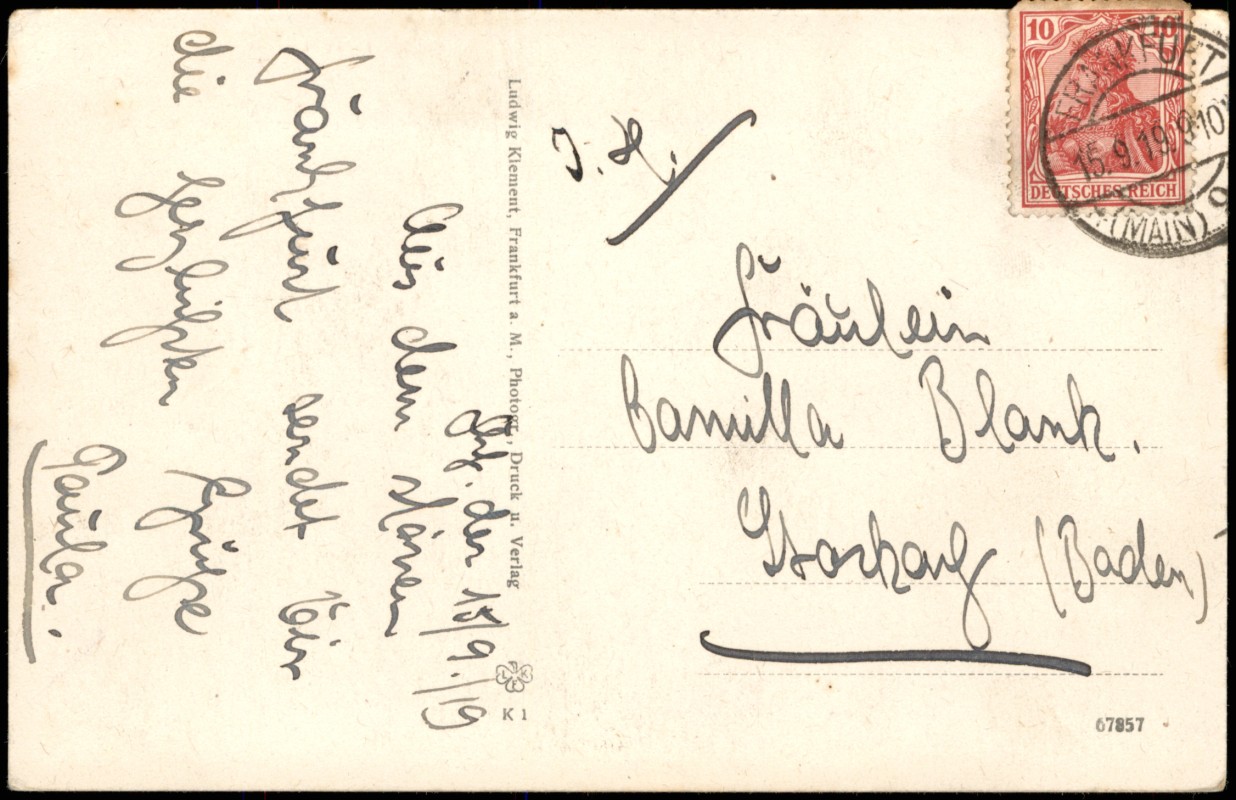 Frf. den 15/9./19
Aus dem schönen
Frankfurt sendet Dir
die herzlichsten Grüsse
Paula.
Ludwig Klement, Frankfurt a. M., Photogr., Druck u. Verlag
K 1
10 10
DEUTSCHES REICH
FRANKFURT
15.9.19
(MAIN) 9
Fräulein
Camilla Blank.
Stockach (Baden)
67857